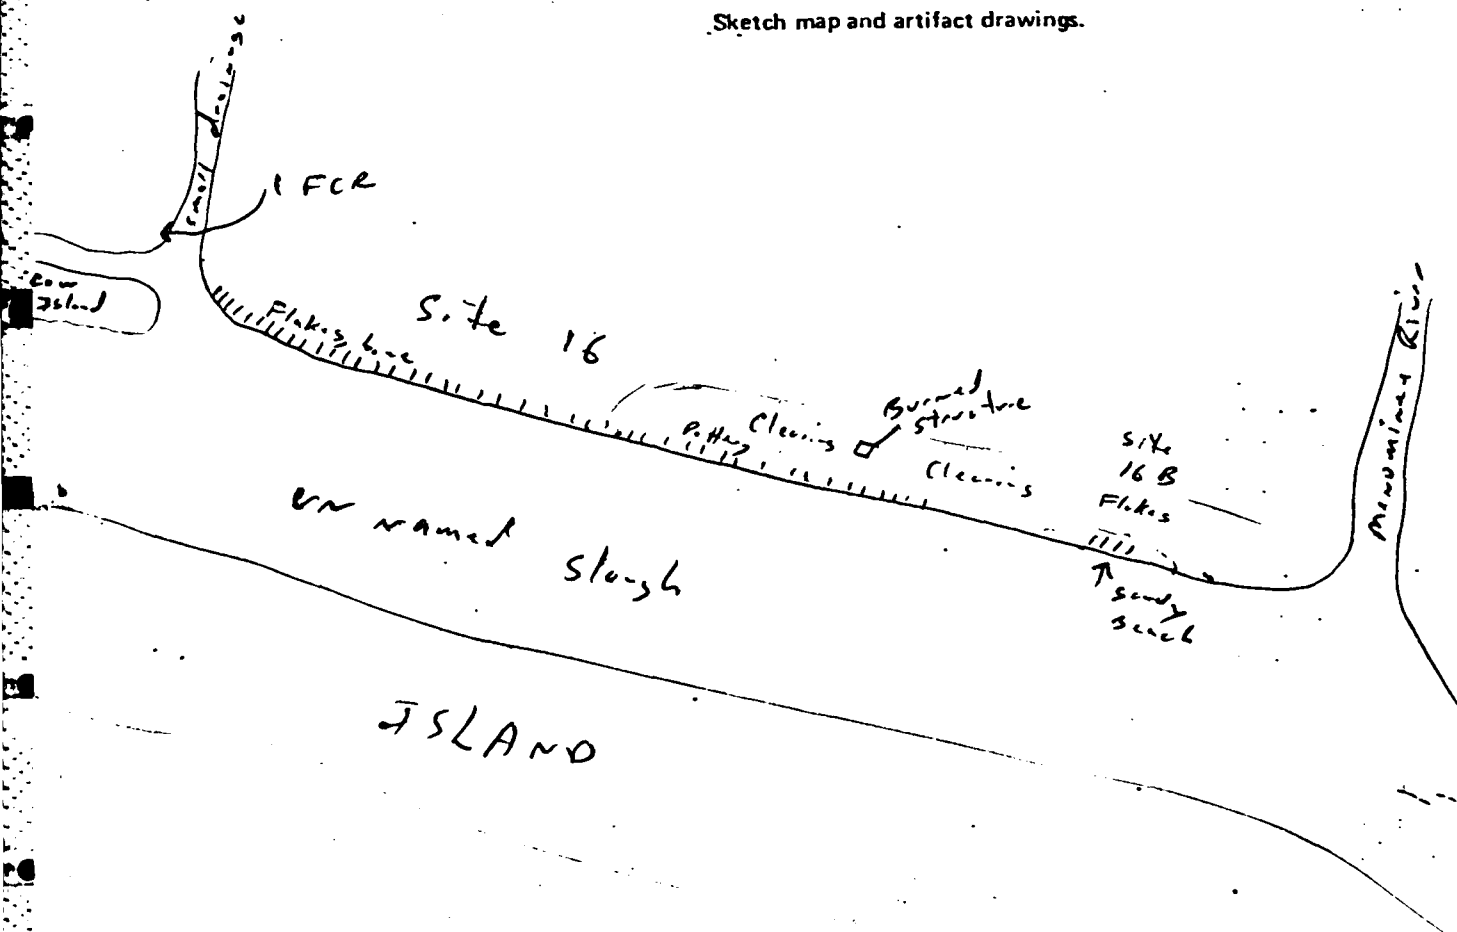 Sketch map and artifact drawings.
small drainage
1 FCR
Low
Island
Flakes, bone
Site 16
Pottery
Clearing
Burned
Structure
Clearing
Site
16 B
Flakes
Sandy
Beach
Menominee River
un named slough
ISLAND